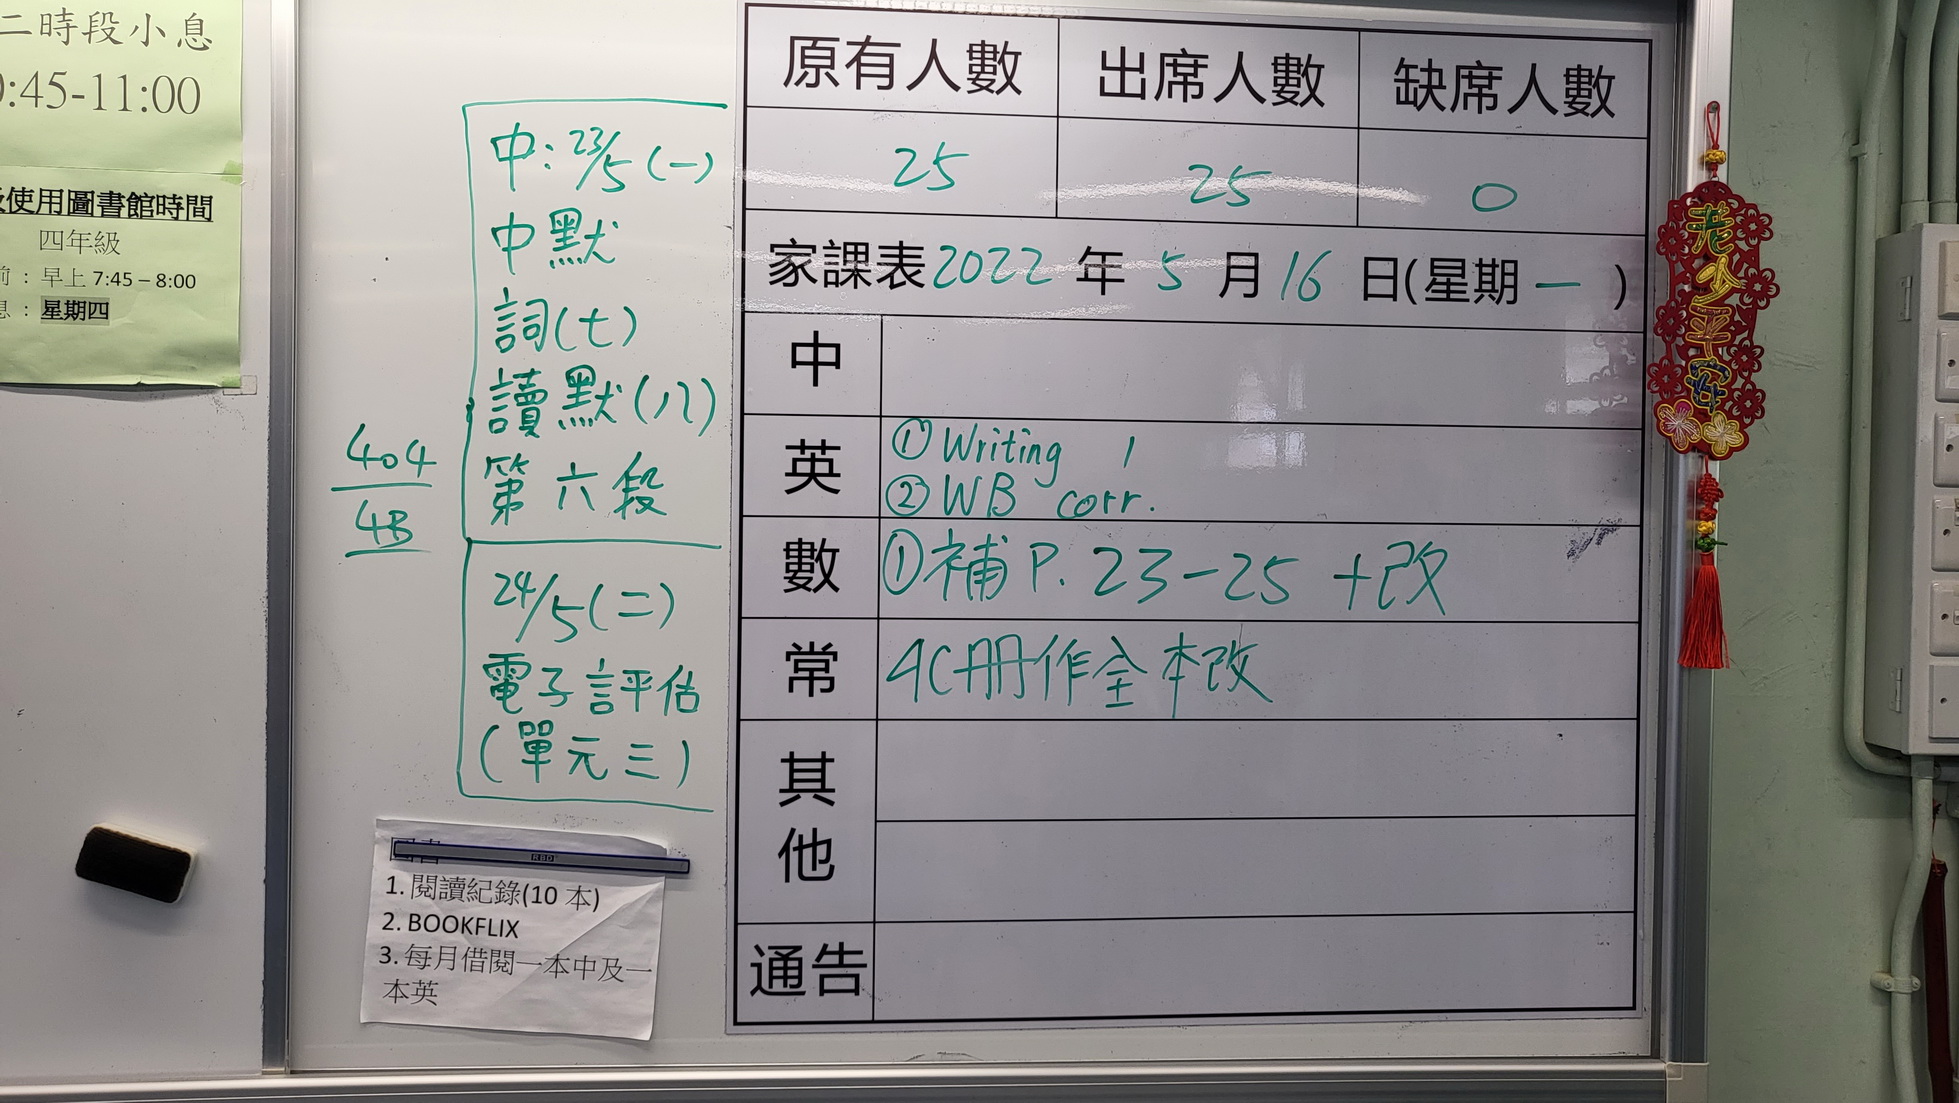 二時段小息
:45-11:00
使用圖書館時間
四年級
前：早上 7:45 – 8:00
息：星期四
404
4B
中: 23/5 (一)
中默
詞(七)
讀默(八)
第六段
24/5 (二)
電子評估
(單元三)
1. 閱讀紀錄(10 本)
2. BOOKFLIX
3. 每月借閱一本中及一
本英
原有人數 出席人數 缺席人數
25 25 0
家課表2022年5月16日(星期一)
中
英 ①Writing 1
②WB corr.
數 ①補P. 23-25 +改
常 4C冊作全本改
其他
通告
老少平安